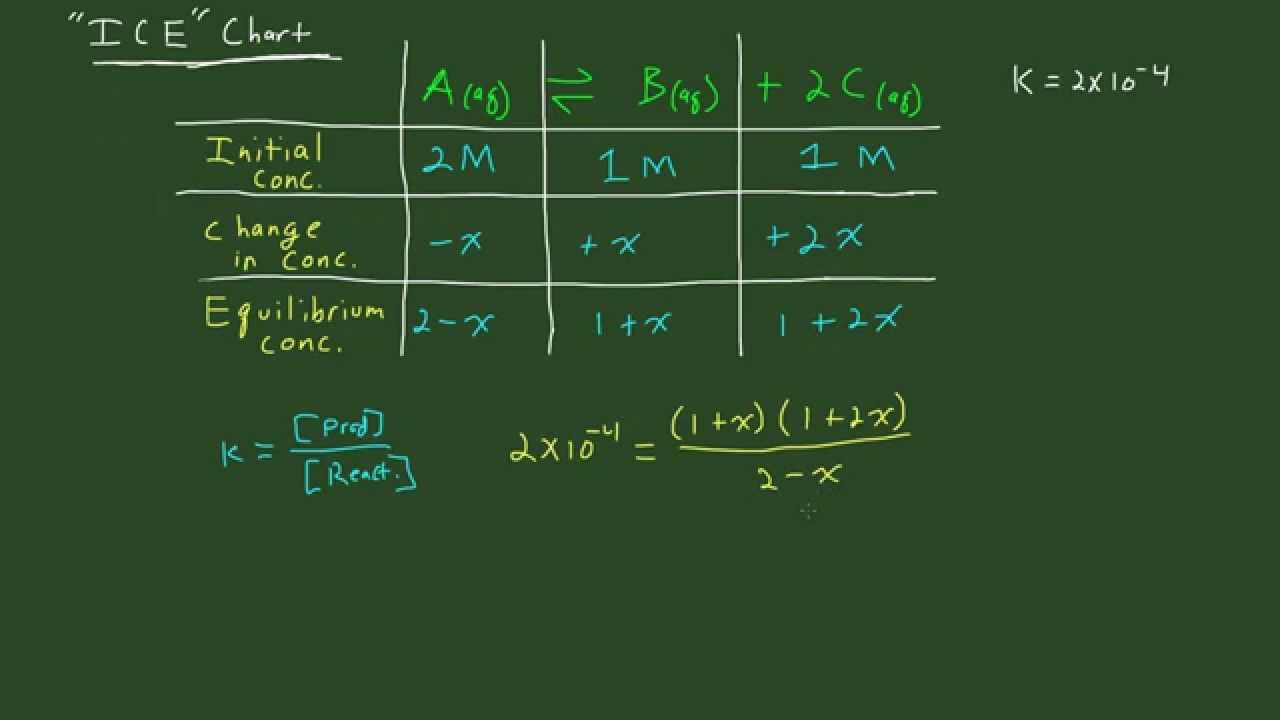 "ICE" Chart
A(aq) ⇌ B(aq) + 2C(aq)
K = 2x10⁻⁴
Initial conc. 2M 1M 1M
change in conc. -x +x +2x
Equilibrium conc. 2-x 1+x 1+2x
K = [Prod]/[React.]
2x10⁻⁴ = (1+x)(1+2x)/2-x